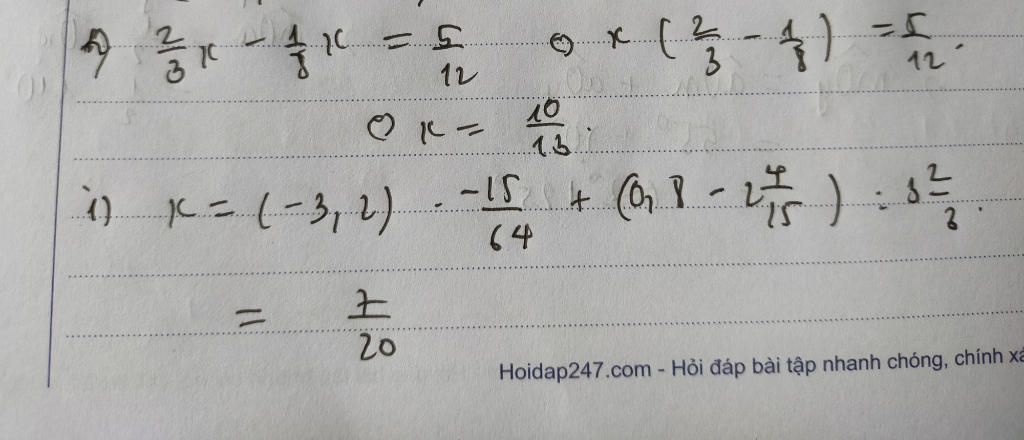 h) 2/3 x - 1/8 x = 5/12 ⇔ x (2/3 - 1/8) = 5/12.
⇔ x = 10/13.
i) x = (-3,2) . -15/64 + (0,8 - 2 4/15) : 3 2/3.
= 7/20
Hoidap247.com - Hỏi đáp bài tập nhanh chóng, chính xá